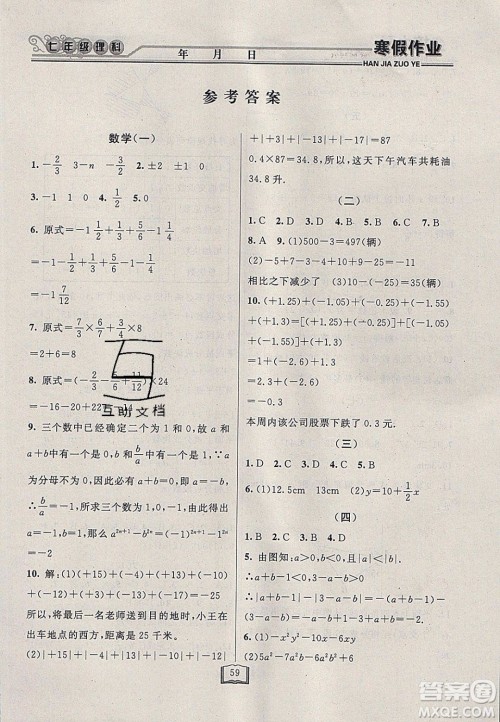 七年级理科
年 月 日
寒假作业
HAN JIA ZUO YE
参考答案
数学(一)
1. -2/3 3-n -2/3 2. ±2 ±1 0
3. -1 1 0 4. 1/2 5. 0
6. 原式=-1 1/2+1/3+1/2+1/4
=-1+1/3+1/4
=-1 7/12
7. 原式=7/3×6/7+3/4×8
=2+6=8
8. 原式=(-2/3-5/6+11/12)×24
9. 三个数中已经确定二个为 1 和 0,故 a
与 a+b 中有一个为 0,b 与 b/a 有一个为 1 ∵a
为分母不为 0,因此 a+b=0,a=-b,
∴b/a=-1,所以三个数为 1,0,-1,∴b=1,
a=-1,那么 a²ⁿ⁺¹-a²ⁿ·b²ⁿ⁺¹=-1-1
=-2
10. 解:(+15)+(-4)+(+13)+(-10)
+(-12)+(+3)+(-13)+(-17)=-25
所以,将最后一名老师送到目的地时,小王在
出车地点的西方,距离是 25 千米.
(2)|+15|+|-4|+|+13|+|-10|
+|+|-12|+|+3|+|-13|+|-17|=87
0.4×87=34.8,所以,这天下午汽车共耗油
34.8 升.
(二)
1. C 2. D 3. D 4. D 5. B 6. C 7. C
8. A 9. (1)500-3=497(辆)
(2)-5+7-3+4+10-9-25=-21(辆)
相比之下减少了 (3)10-(-25)=35(辆)
10. (+1.25)+(-1.05)+(-0.25)+(-1.55)
+(+1.3)=(+1.25)+(-0.25)+(-1.05)+
(-1.55)+(+1.3)
=1+(-2.6)+(+1.3)
=1+(-1.3)
=-0.3.
本周内该公司股票下跌了 0.3 元.
(三)
1. D 2. C 3. C 4. A 5. B
6. (1)12.5cm 13cm (2)y=10+1/2x
(四)
1. B 2. B 3. D 4. C
5. 由图知:a>0,b<0,|a|<|b|.
∴a+b-1<0,b-a<0
6. (1)-x²y²-10-6xy
(2)5a²b-7a²b²-6a²b²
59
互助文档
答案圈
MXQE.COM